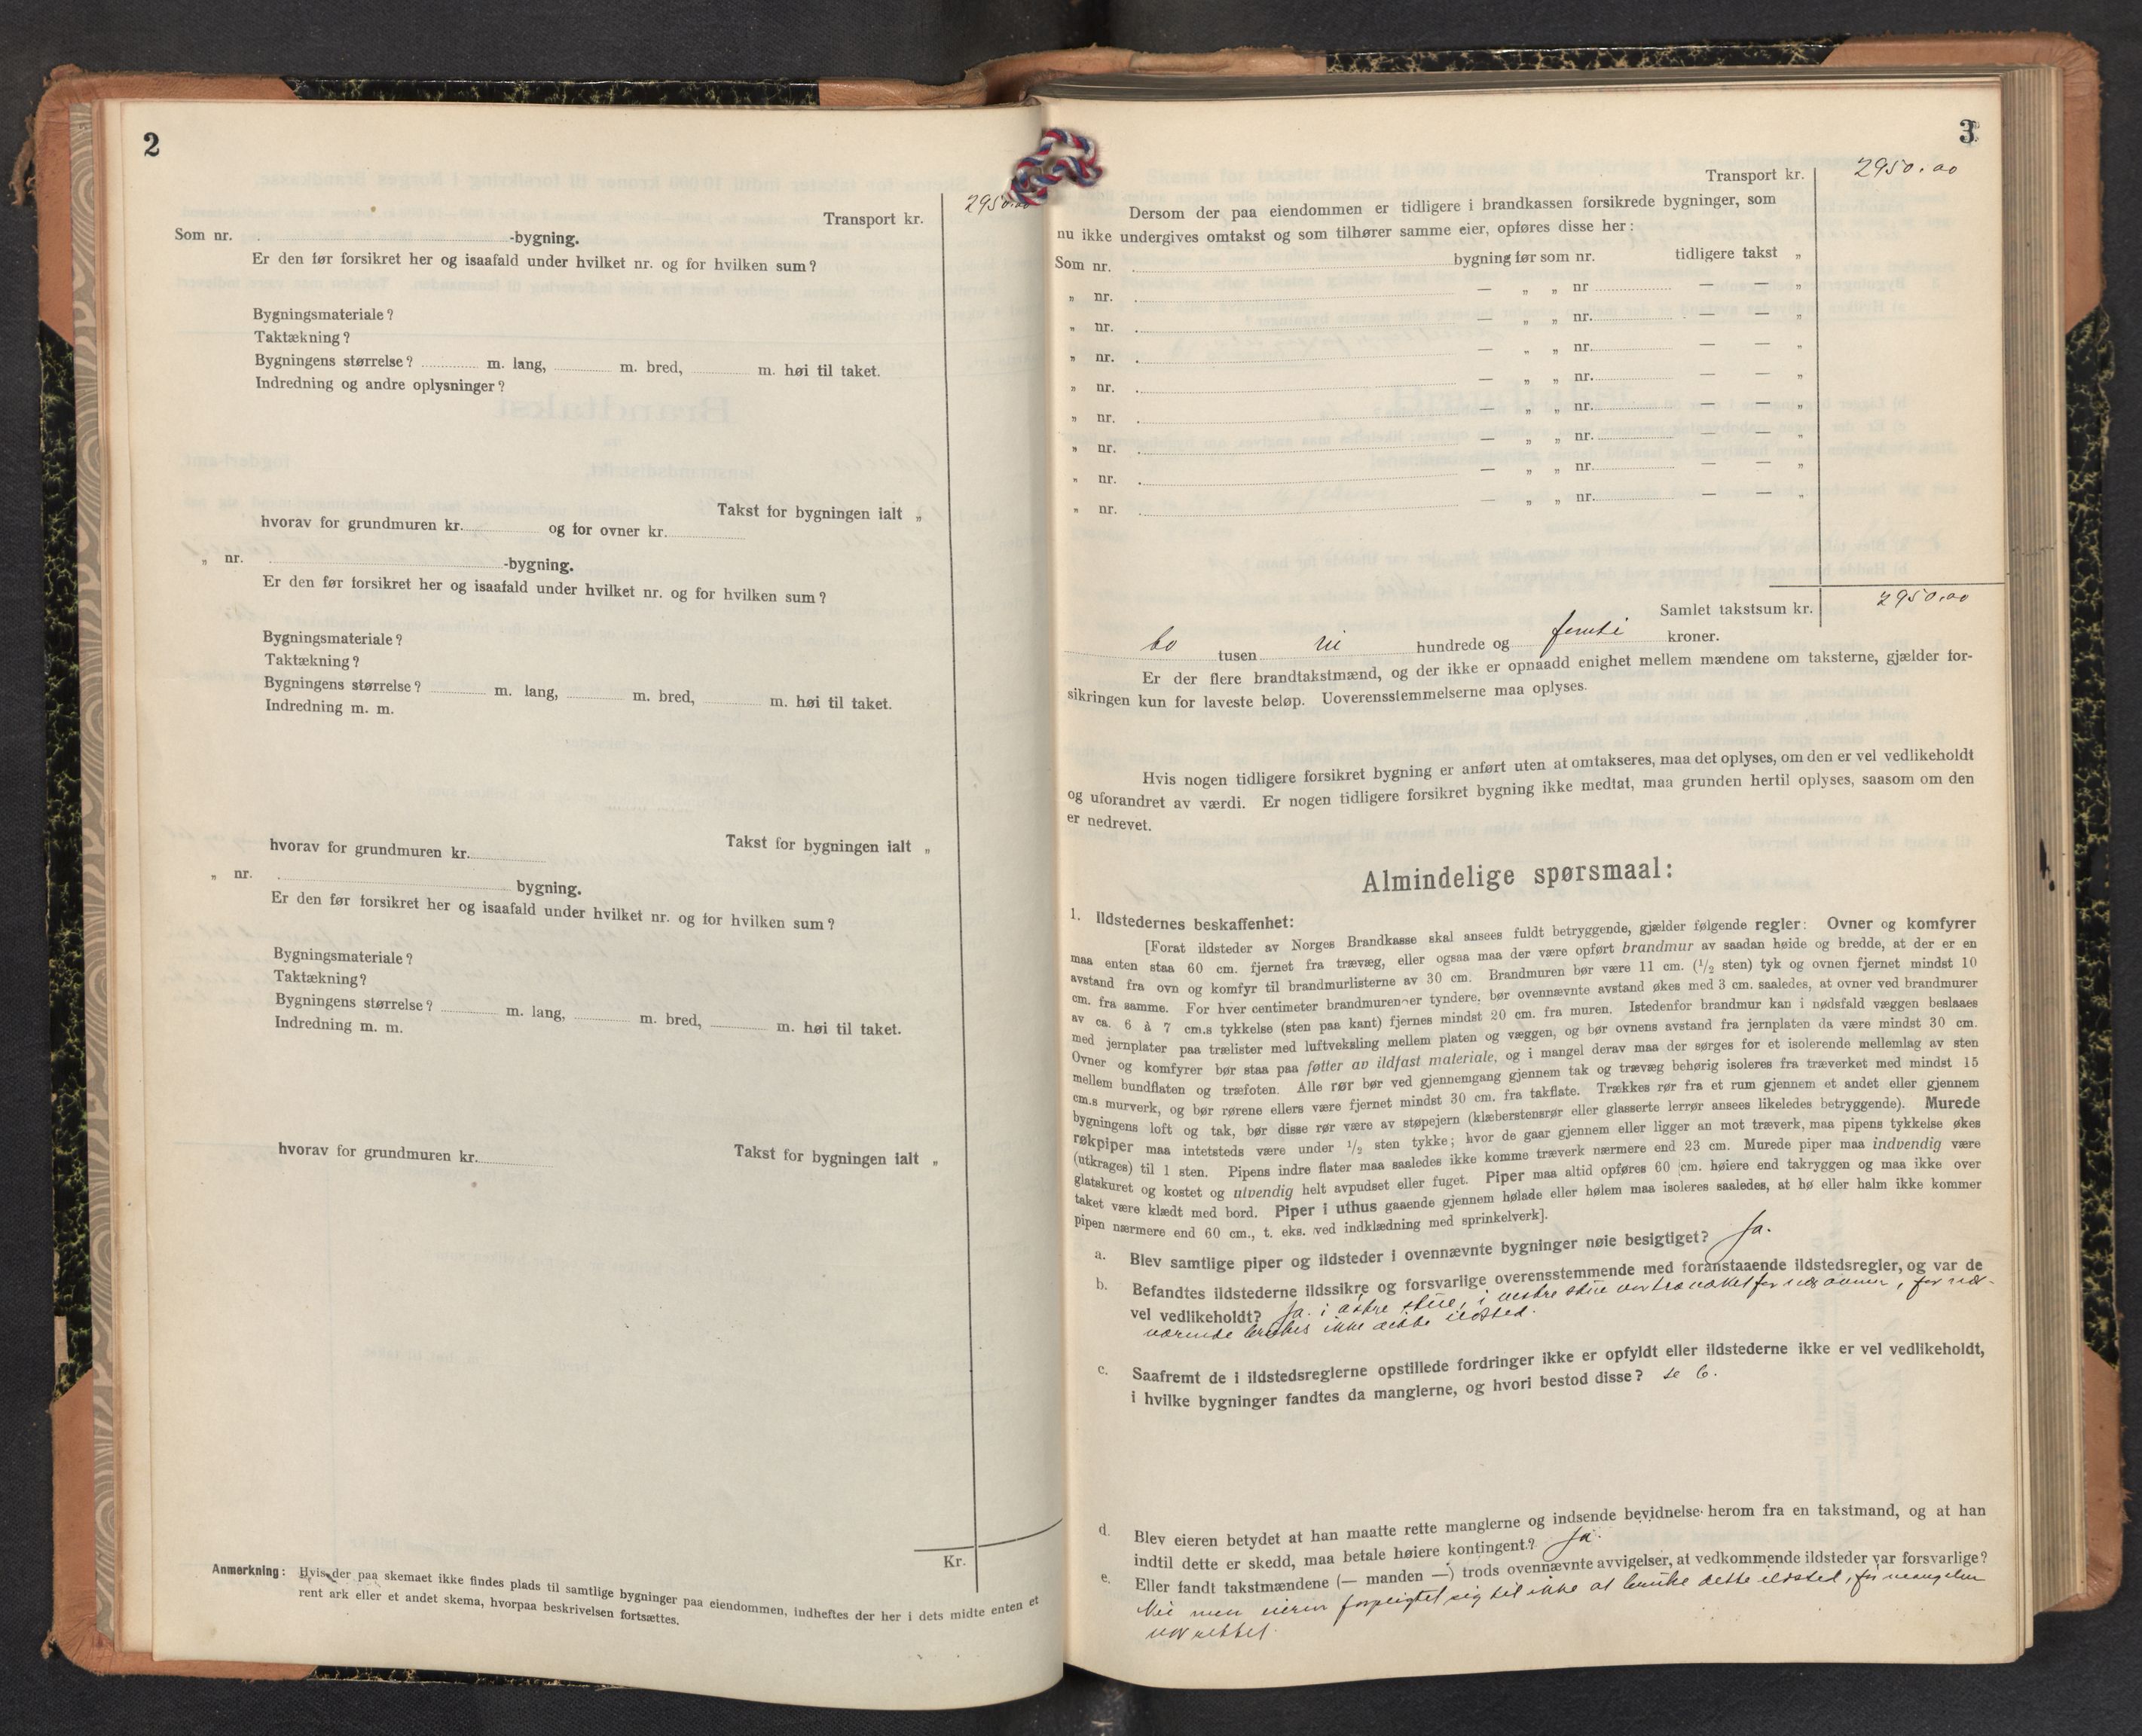 2
Transport kr. 2950.00
Som nr. -bygning.
Er den før forsikret her og isaafald under hvilket nr. og for hvilken sum?
Bygningsmateriale?
Taktækning?
Bygningens størrelse? m. lang, m. bred, m. høi til taket.
Indredning og andre oplysninger?
Takst for bygningen ialt „
hvorav for grundmuren kr. og for ovner kr.
„ nr. -bygning.
Er den før forsikret her og isaafald under hvilket nr. og for hvilken sum?
Bygningsmateriale?
Taktækning?
Bygningens størrelse? m. lang, m. bred, m. høi til taket.
Indredning m. m.
hvorav for grundmuren kr. Takst for bygningen ialt „
„ nr. bygning.
Er den før forsikret her og isaafald under hvilket nr. og for hvilken sum?
Bygningsmateriale?
Taktækning?
Bygningens størrelse? m. lang, m. bred, m. høi til taket.
Indredning m. m.
hvorav for grundmuren kr. Takst for bygningen ialt „
Kr.
Anmerkning: Hvis der paa skemaet ikke findes plads til samtlige bygninger paa eiendommen, indheftes der her i dets midte enten et
rent ark eller et andet skema, hvorpaa beskrivelsen fortsættes.
3
Transport kr. 2950.00
Dersom der paa eiendommen er tidligere i brandkassen forsikrede bygninger, som
nu ikke undergives omtakst og som tilhører samme eier, opføres disse her:
Som nr. bygning før som nr. tidligere takst „
„ nr. — „ „ nr — — „
„ nr. — „ „ nr. — — „
„ nr. — „ „ nr. — — „
„ nr. — „ „ nr. — — „
„ nr. — „ „ nr. — — „
„ nr. — „ „ nr. — — „
„ nr. — „ „ nr. — — „
„ nr. — „ „ nr. — — „
Samlet takstsum kr. 2950.00
to tusen ni hundrede og femti kroner.
Er der flere brandtakstmænd, og der ikke er opnaadd enighet mellem mændene om taksterne, gjælder for-
sikringen kun for laveste beløp. Uoverensstemmelserne maa oplyses.
Hvis nogen tidligere forsikret bygning er anført uten at omtakseres, maa det oplyses, om den er vel vedlikeholdt
og uforandret av værdi. Er nogen tidligere forsikret bygning ikke medtat, maa grunden hertil oplyses, saasom om den
er nedrevet.
Almindelige spørsmaal:
1. Ildstedernes beskaffenhet:
[Forat ildsteder av Norges Brandkasse skal ansees fuldt betryggende, gjælder følgende regler: Ovner og komfyrer
maa enten staa 60 cm. fjernet fra trævæg, eller ogsaa maa der være opført brandmur av saadan høide og bredde, at der er en
avstand fra ovn og komfyr til brandmurlisterne av 30 cm. Brandmuren bør være 11 cm. (1/2 sten) tyk og ovnen fjernet mindst 10
cm. fra samme. For hver centimeter brandmuren er tyndere, bør ovennævnte avstand økes med 3 cm. saaledes, at ovner ved brandmurer
av ca. 6 à 7 cm.s tykkelse (sten paa kant) fjernes mindst 20 cm. fra muren. Istedenfor brandmur kan i nødsfald væggen beslaaes
med jernplater paa trælister med luftveksling mellem platen og væggen, og bør ovnens avstand fra jernplaten da være mindst 30 cm.
Ovner og komfyrer bør staa paa føtter av ildfast materiale, og i mangel derav maa der sørges for et isolerende mellemlag av sten
mellem bundflaten og træfoten. Alle rør bør ved gjennemgang gjennem tak og trævæg behørig isoleres fra træverket med mindst 15
cm.s murverk, og bør rørene ellers være fjernet mindst 30 cm. fra takflate. Trækkes rør fra et rum gjennem et andet eller gjennem
bygningens loft og tak, bør disse rør være av støpejern (klæberstensrør eller glasserte lerrør ansees likeledes betryggende). Murede
røkpiper maa intetsteds være under 1/2 sten tykke; hvor de gaar gjennem eller ligger an mot træverk, maa pipens tykkelse økes
(utkrages) til 1 sten. Pipens indre flater maa saaledes ikke komme træverk nærmere end 23 cm. Murede piper maa indvendig være
glatskuret og kostet og utvendig helt avpudset eller fuget. Piper maa altid opføres 60 cm. høiere end takryggen og maa ikke over
taket være klædt med bord. Piper i uthus gaaende gjennem hølade eller hølem maa isoleres saaledes, at hø eller halm ikke kommer
pipen nærmere end 60 cm., t. eks. ved indklædning med sprinkelverk].
a. Blev samtlige piper og ildsteder i ovennævnte bygninger nøie besigtiget? Ja.
b. Befandtes ildstederne ildssikre og forsvarlige overensstemmende med foranstaaende ildstedsregler, og var de
vel vedlikeholdt? Ja. i østre stue, i vestre stue var træverket for nær ovnen, for nær-
værende brukes ikke dette ildsted.
c. Saafremt de i ildstedsreglerne opstillede fordringer ikke er opfyldt eller ildstederne ikke er vel vedlikeholdt,
i hvilke bygninger fandtes da manglerne, og hvori bestod disse? se b.
d. Blev eieren betydet at han maatte rette manglerne og indsende bevidnelse herom fra en takstmand, og at han
indtil dette er skedd, maa betale høiere kontingent? Ja.
e. Eller fandt takstmændene (— manden —) trods ovennævnte avvigelser, at vedkommende ildsteder var forsvarlige?
Nei men eieren forpligtet sig til ikke at bruke dette ildsted, før mangelen
var rettet.